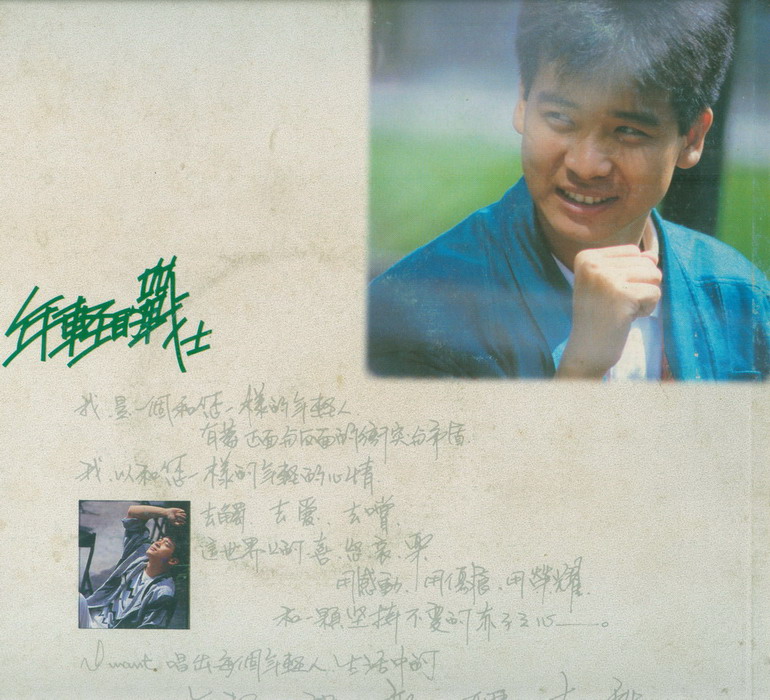 年輕的戰士
我.是一個和您一樣的年輕人
有著 面與 面的衝突與
我.以和您一樣的年輕的心情.
去觸.去愛.去嚐.
這世界上的.喜.怒.哀.樂.
用感動.用 .用榮耀.
和一顆堅持不變的赤子之心——。
I want.唱出每個年輕人.生活中的